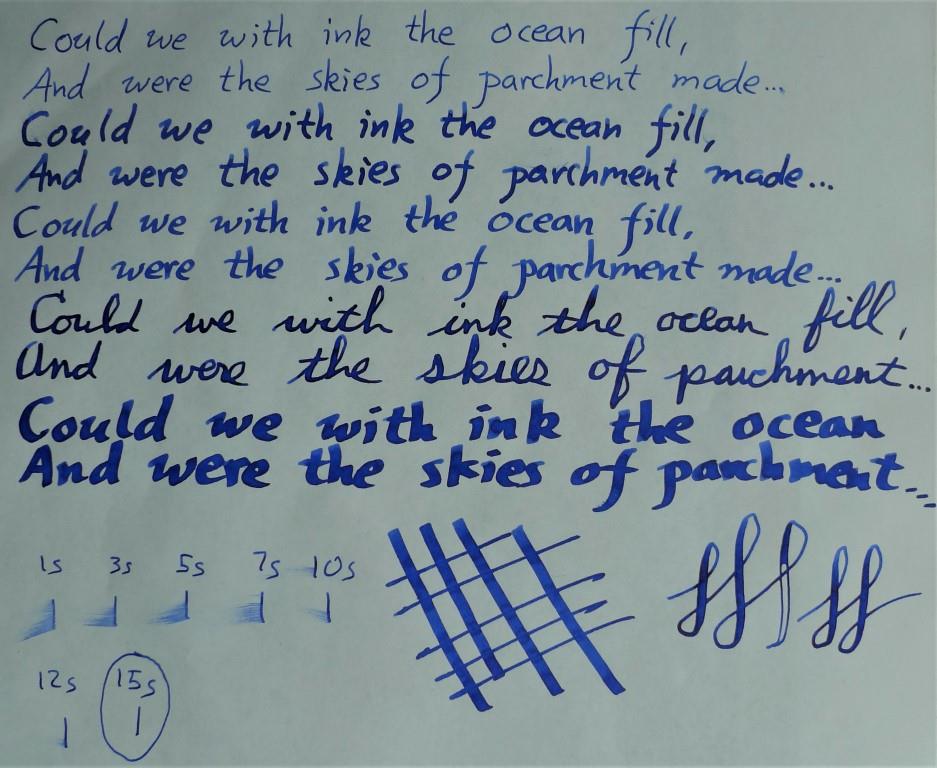 Could we with ink the ocean fill,
And were the skies of parchment made...
Could we with ink the ocean fill,
And were the skies of parchment made...
Could we with ink the ocean fill,
And were the skies of parchment made...
Could we with ink the ocean fill,
And were the skies of parchment...
Could we with ink the ocean
And were the skies of parchment...
1s 3s 5s 7s 10s
12s 15s